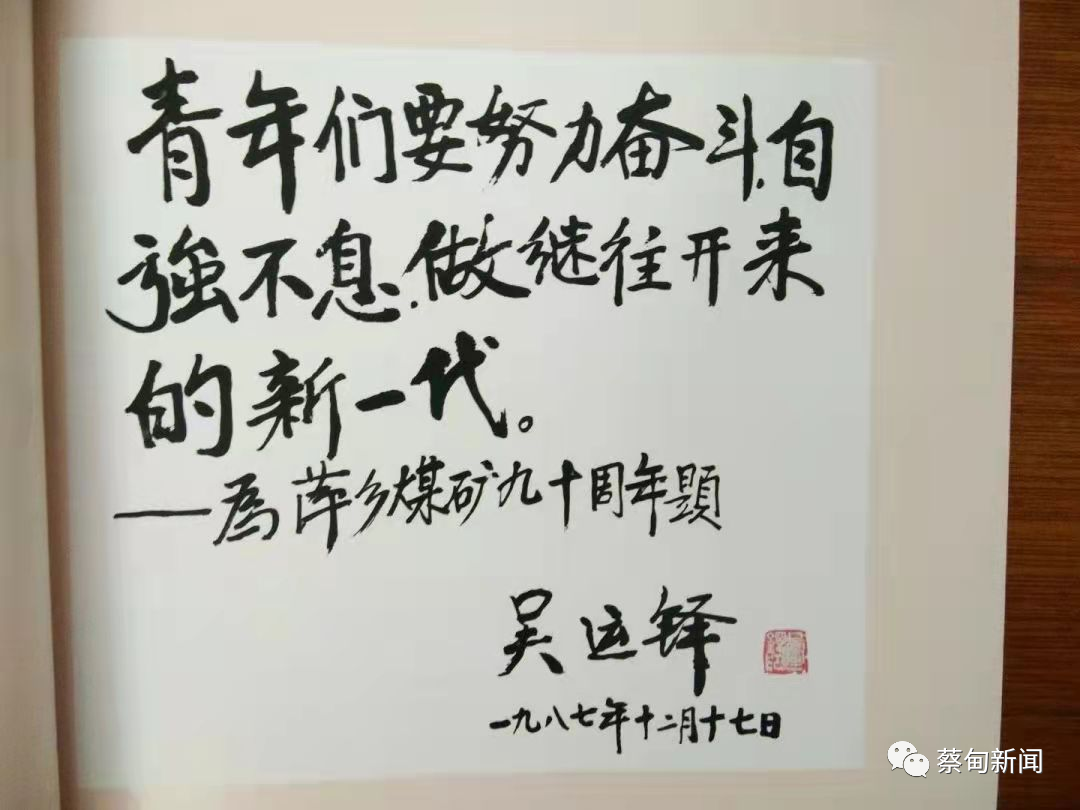 青年们要努力奋斗.自
強不息.做继往开来
的新一代。
——為萍乡煤矿九十周年題
吴运铎
一九八七年十二月十七日
蔡甸新闻